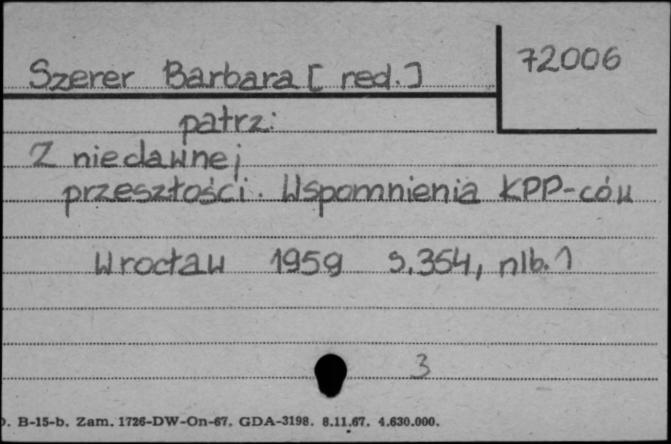 72006
Szerer Barbara [ red. ]
patrz:
Z niedawnej
przeszłości. Wspomnienia KPP-ców
Wrocław 1959 s. 354, nlb. 1
3
B-15-b. Zam. 1726-DW-On-67. GDA-3198. 8.11.67. 4.630.000.